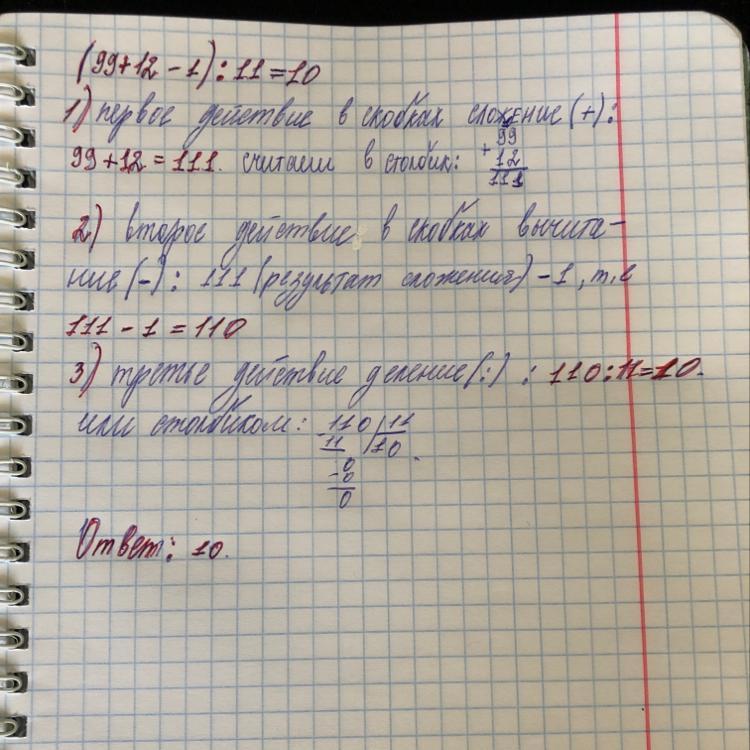 (99+12-1):11=10
1) первое действие в скобках сложение (+):
99+12=111. считаем в столбик: +99
12
111
2) второе действие в скобках вычита-
ние (-): 111 (результат сложения) -1, т.е
111-1=110
3) третье действие деление (:) : 110:11=10.
или столбиком: 110 11
11 10.
0
-0
0
Ответ: 10.